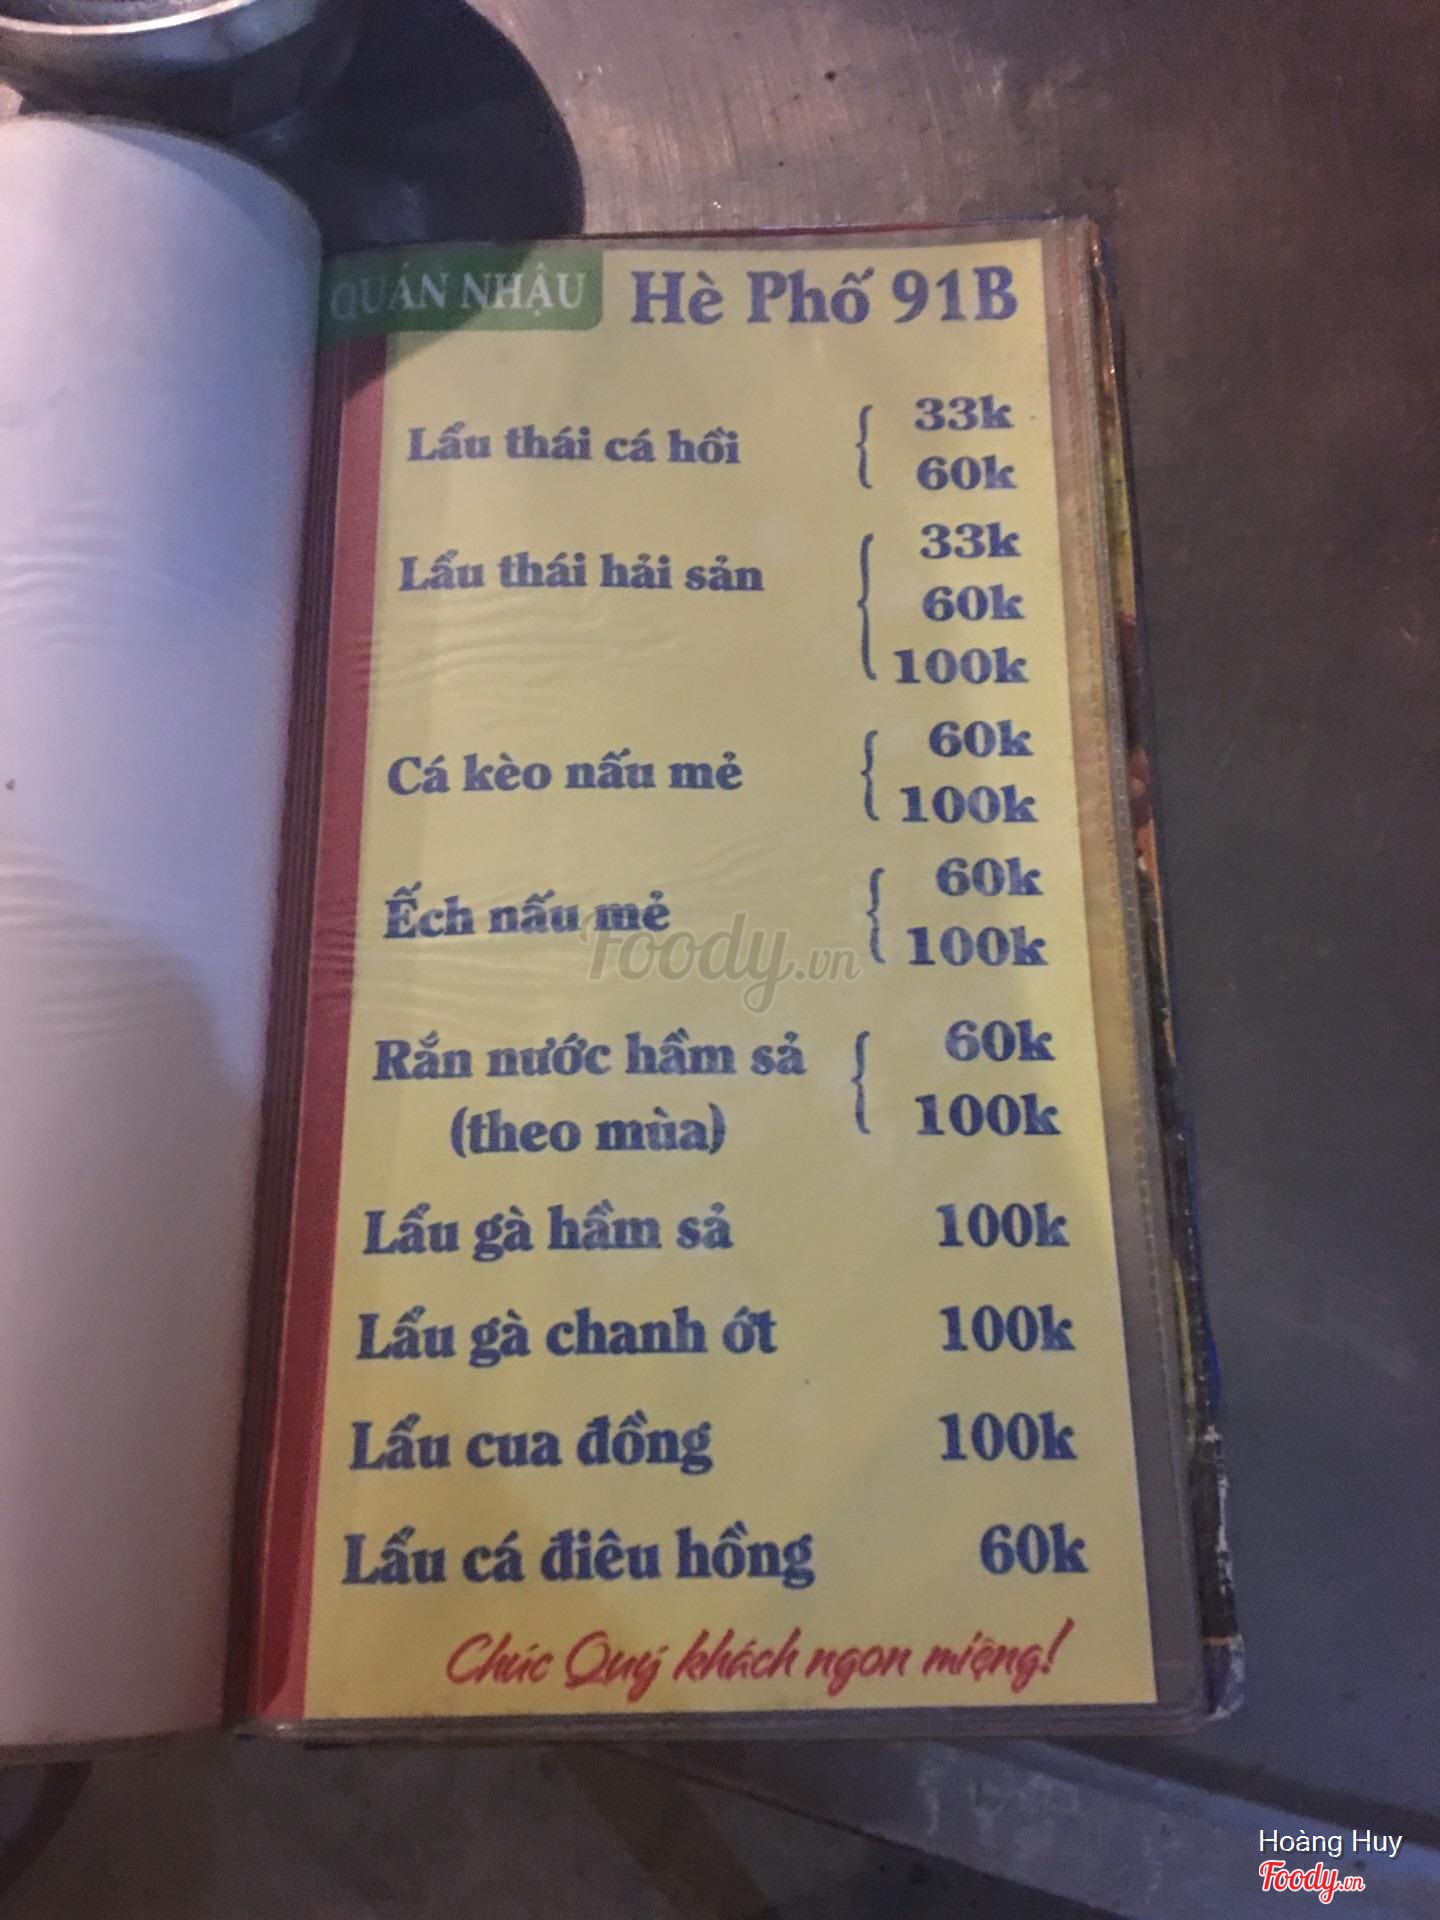 QUÁN NHẬU Hè Phố 91B
Lẩu thái cá hồi { 33k
60k
Lẩu thái hải sản { 33k
60k
100k
Cá kèo nấu mẻ { 60k
100k
Ếch nấu mẻ { 60k
100k
Foody.vn
Rắn nước hầm sả { 60k
(theo mùa) 100k
Lẩu gà hầm sả 100k
Lẩu gà chanh ớt 100k
Lẩu cua đồng 100k
Lẩu cá điêu hồng 60k
Chúc Quý khách ngon miệng!
Hoàng Huy
Foody.vn